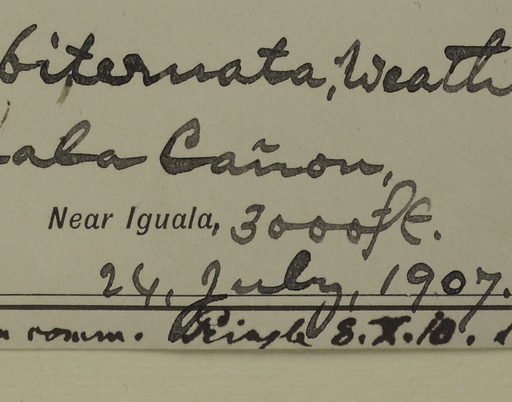 biternata, Weath
uala Cañon,
Near Iguala, 3000 ft.
24, July, 1907.
n comm. Pringle 8.X.10.